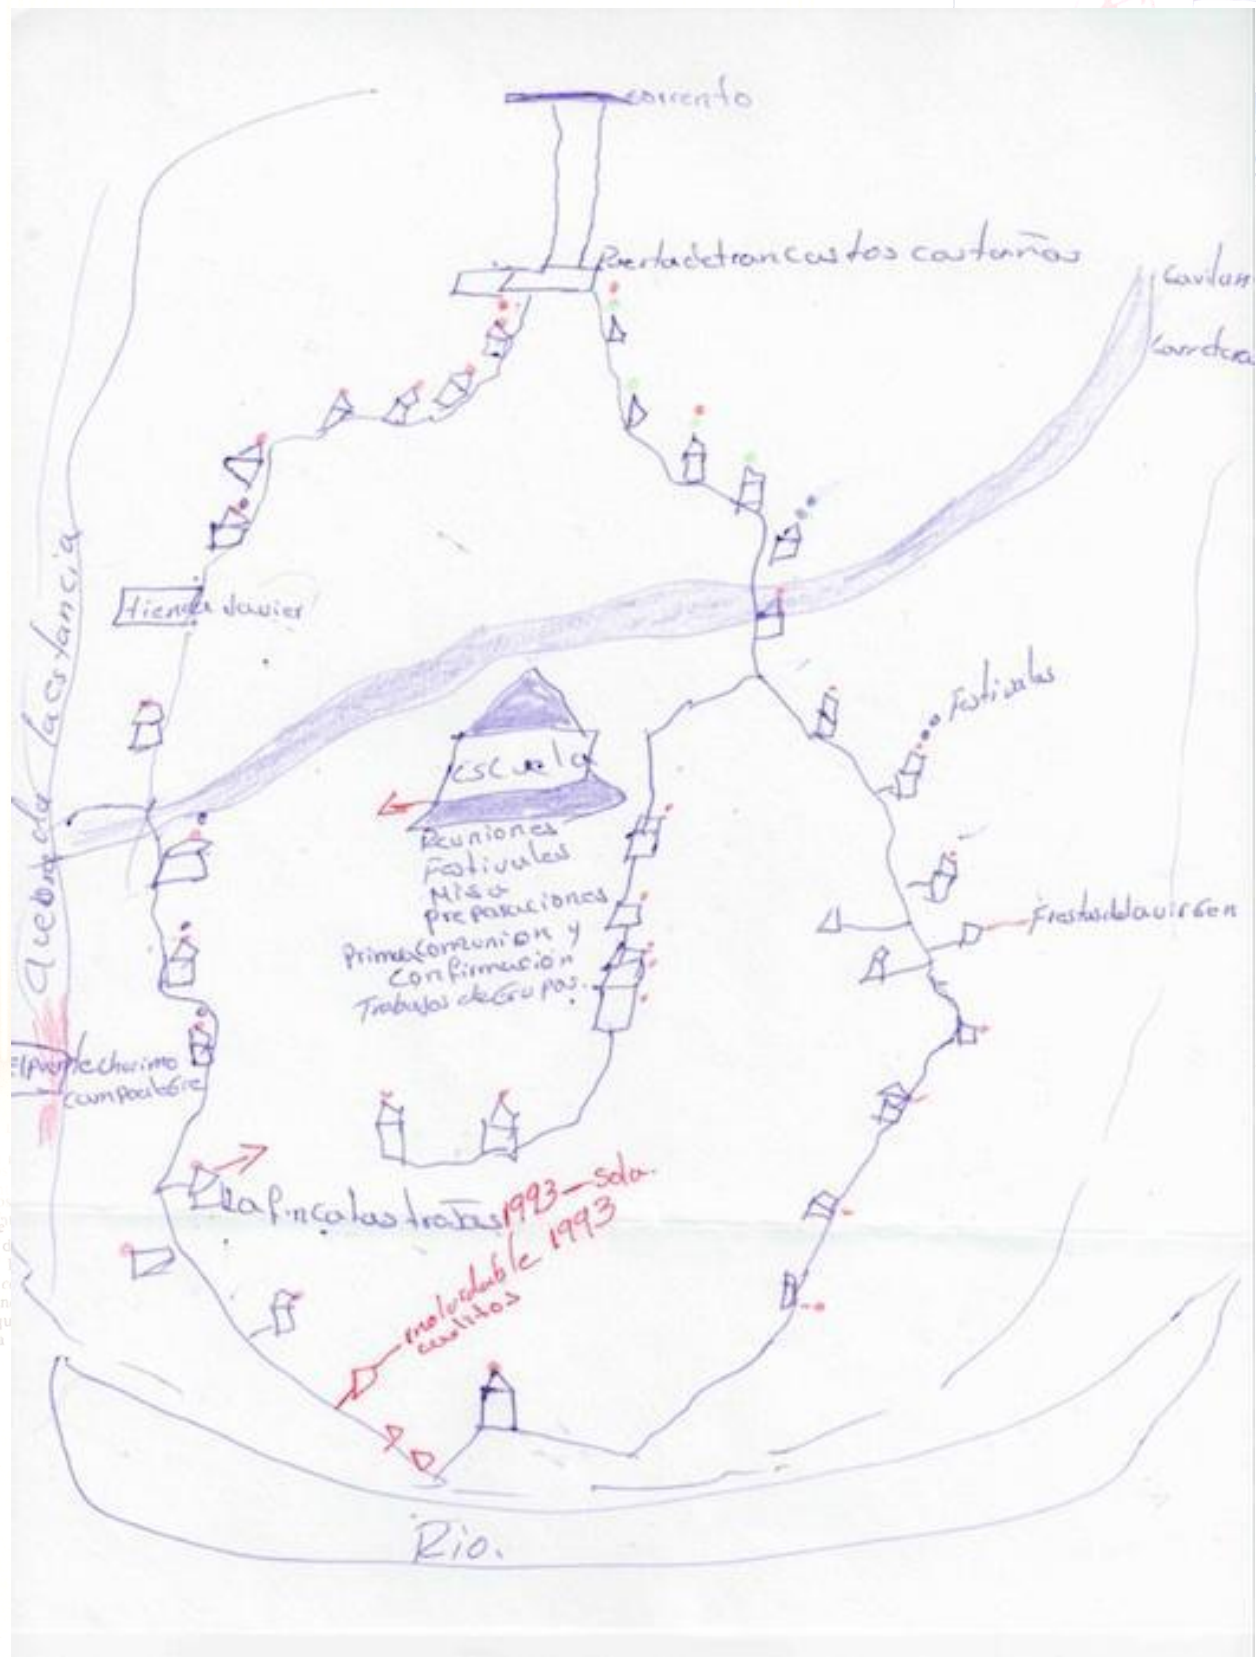 corrento
Puertadetrancastos castaños
Gavilan
Carretera
tienda Javier
Quebrada la estancia
Festivales
escuela
Reuniones
Festivales
Misa
preparaciones
Primeacomunion y
Confirmacion
Trabajos de Grupos.
Fiestasdelavirgen
El puente charimo
campoalegre
La fincalas trajas 1993-sola.
1993
Rio.